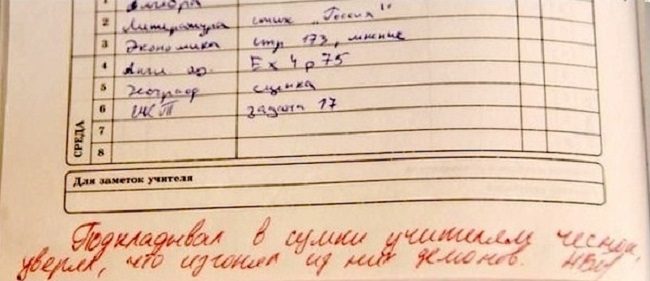 1 Алгебра
2 Литература стих „Россия"
3 Экономика стр 173, мнение
4 Англ. яз. Ex 4 p 75
5 Географ сценка
6 ИКТ задача 17
7
8
СРЕДА
Для заметок учителя
Подкладывал в сумки учителям чеснок,
уверял, что изгонял из них демонов.